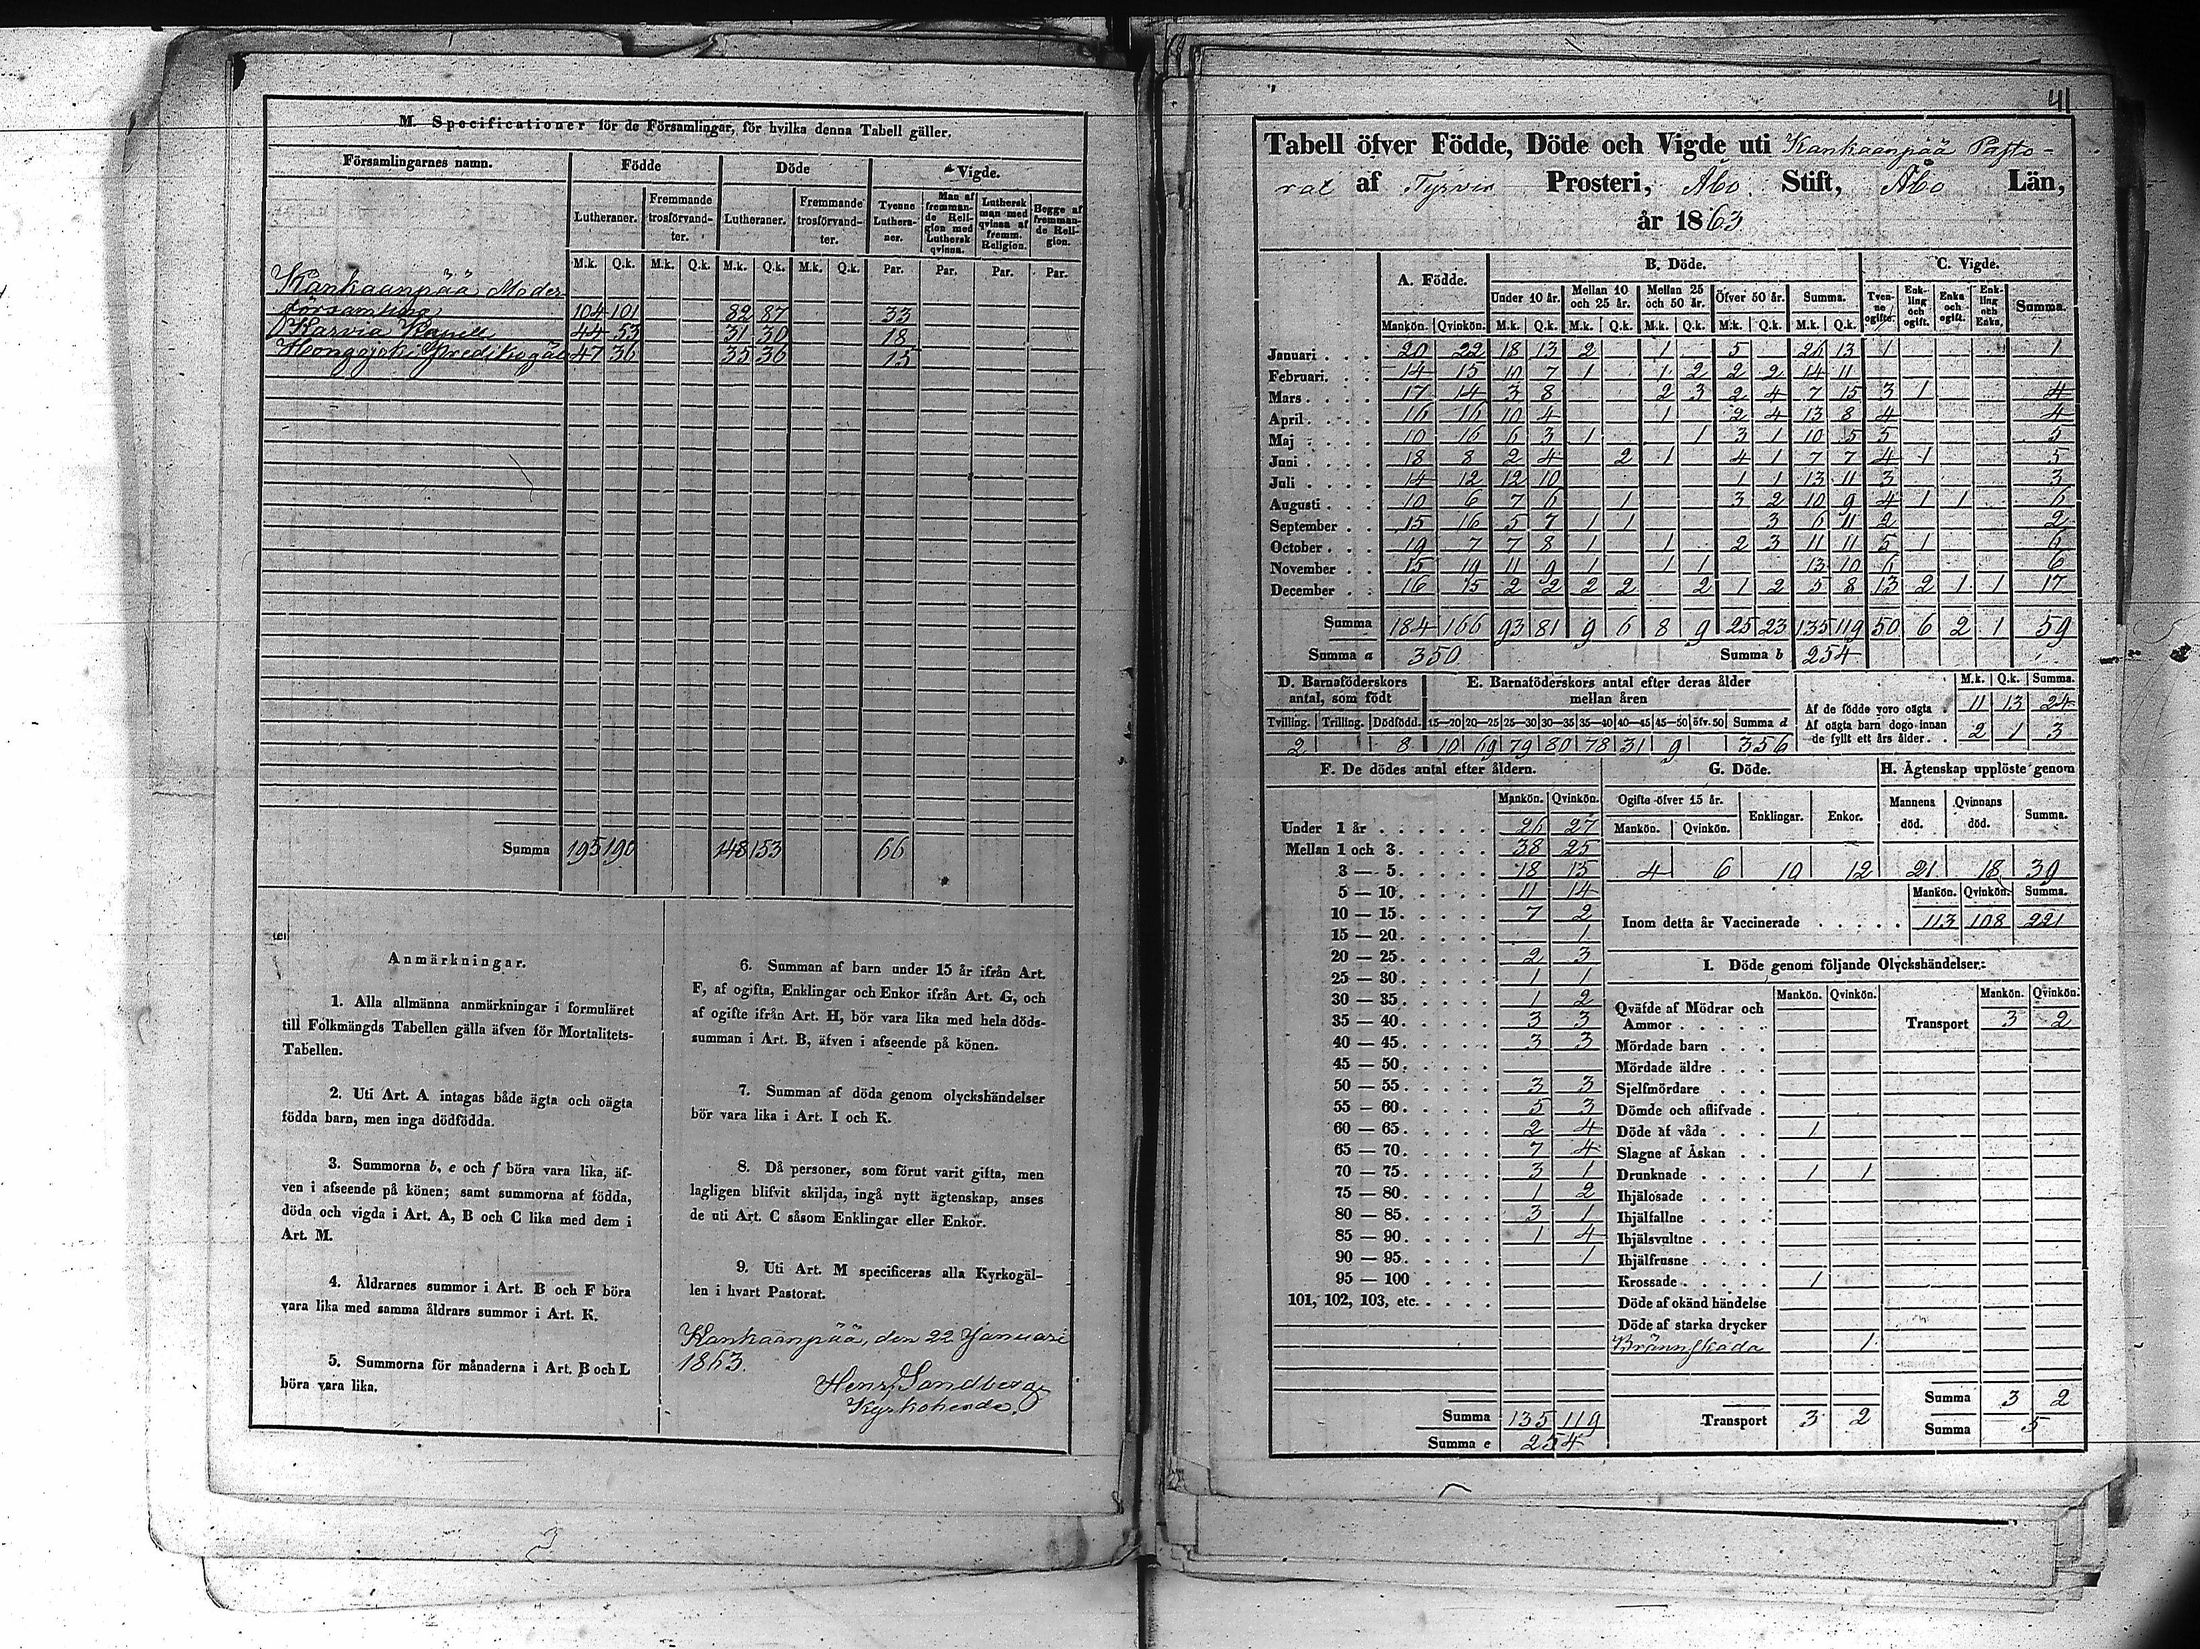 M. Specificationer för de Församlingar, för hvilka denna Tabell gäller.
Församlingarnes namn. Födde Döde Vigde.
Lutheraner. Fremmande trosförvandter. Lutheraner. Fremmande trosförvandter. Tvenne Lutheraner. Man af fremmande Religion med Luthersk qvinna. Luthersk man med qvinna af fremm. Religion. Begge af fremmande Religion.
M.k. Q.k. M.k. Q.k. M.k. Q.k. M.k. Q.k. Par. Par. Par. Par.
Kankaanpää Moder
församling 104 101 82 87 33
Karvia Kapell 44 53 31 30 18
Hongojoki Predikogäll 47 36 35 36 15
Summa 195 190 148 153 66
Anmärkningar.
1. Alla allmänna anmärkningar i formuläret
till Folkmängds Tabellen gälla äfven för Mortalitets-
Tabellen.
2. Uti Art. A intagas både ägta och oägta
födda barn, men inga dödfödda.
3. Summorna b, e och f böra vara lika, äf-
ven i afseende på könen; samt summorna af födda,
döda och vigda i Art. A, B och C lika med dem i
Art. M.
4. Åldrarnes summor i Art. B och F böra
vara lika med samma åldrars summor i Art. K.
5. Summorna för månaderna i Art. B och L
böra vara lika.
6. Summan af barn under 15 år ifrån Art.
F, af ogifta, Enklingar och Enkor ifrån Art. G, och
af ogifte ifrån Art. H, bör vara lika med hela döds-
summan i Art. B, äfven i afseende på könen.
7. Summan af döda genom olyckshändelser
bör vara lika i Art. I och K.
8. Då personer, som förut varit gifta, men
lagligen blifvit skiljda, ingå nytt ägtenskap, anses
de uti Art. C såsom Enklingar eller Enkor.
9. Uti Art. M specificeras alla Kyrkogäl-
len i hvart Pastorat.
Kankaanpää, den 22 Januari
1863.
Henr. Sandberg
Kyrkoherde.
41
Tabell öfver Födde, Döde och Vigde uti Kankaanpää Pasto-
rat af Tyrvis Prosteri, Åbo Stift, Åbo Län,
år 1863
A. Födde. B. Döde. C. Vigde.
Under 10 år. Mellan 10 och 25 år. Mellan 25 och 50 år. Öfver 50 år. Summa. Tvenne ogifte. Enkling och ogift. Enka och ogift. Enkling och Enka. Summa.
Mankön. Qvinkön. M.k. Q.k. M.k. Q.k. M.k. Q.k. M.k. Q.k. M.k. Q.k.
Januari 20 22 18 13 2 1 5 26 13 1 1
Februari. 14 15 10 7 1 1 2 2 2 14 11
Mars 17 14 3 8 2 3 2 4 7 15 3 1 4
April 16 16 10 4 1 2 4 13 8 4 4
Maj 10 16 6 3 1 1 3 1 10 5 5 5
Juni 18 8 2 4 2 1 4 1 7 7 4 1 5
Juli 14 12 12 10 1 1 13 11 3 3
Augusti 10 6 7 6 1 3 2 10 9 4 1 1 6
September 15 16 5 7 1 1 3 6 11 2 2
October 19 7 7 8 1 1 2 3 11 11 5 1 6
November 15 19 11 9 1 1 1 13 10 6 6
December 16 15 2 2 2 2 2 1 2 5 8 13 2 1 1 17
Summa 184 166 93 81 9 6 8 9 25 23 135 119 50 6 2 1 59
Summa a 350 Summa b 254
D. Barnaföderskors antal, som födt
Tvilling. Trilling. Dödfödd.
2 8
E. Barnaföderskors antal efter deras ålder mellan åren
15—20 20—25 25—30 30—35 35—40 40—45 45—50 öfv. 50 Summa d
10 69 79 80 78 31 9 356
M.k. Q.k. Summa.
Af de födde voro oägta 11 13 24
Af oägta barn dogo innan de fyllt ett års ålder 2 1 3
F. De dödes antal efter åldern.
Mankön. Qvinkön.
Under 1 år 26 27
Mellan 1 och 3 38 25
3 — 5 18 15
5 — 10 11 14
10 — 15 7 2
15 — 20 1
20 — 25 2 3
25 — 30 1 1
30 — 35 1 2
35 — 40 3 3
40 — 45 3 3
45 — 50
50 — 55 3 3
55 — 60 5 3
60 — 65 2 4
65 — 70 7 4
70 — 75 3 1
75 — 80 1 2
80 — 85 3 1
85 — 90 1 4
90 — 95 1
95 — 100
101, 102, 103, etc.
Summa 135 119
Summa e 254
G. Döde.
Ogifte öfver 15 år. Enklingar. Enkor.
Mankön. Qvinkön.
4 6 10 12
H. Ägtenskap upplöste genom
Mannens död. Qvinnans död. Summa.
21 18 39
Mankön. Qvinkön. Summa.
Inom detta år Vaccinerade 113 108 221
I. Döde genom följande Olyckshändelser:
Mankön. Qvinkön. Mankön. Qvinkön.
Qväfde af Mödrar och Ammor
Transport 3 2
Mördade barn
Mördade äldre
Sjelfmördare
Dömde och aflifvade
Döde af våda 1
Slagne af Åskan
Drunknade 1 1
Ihjälosade
Ihjälfallne
Ihjälsvultne
Ihjälfrusne
Krossade 1
Döde af okänd händelse
Döde af starka drycker
Brännskada 1
Transport 3 2
Summa 3 2
Summa 5